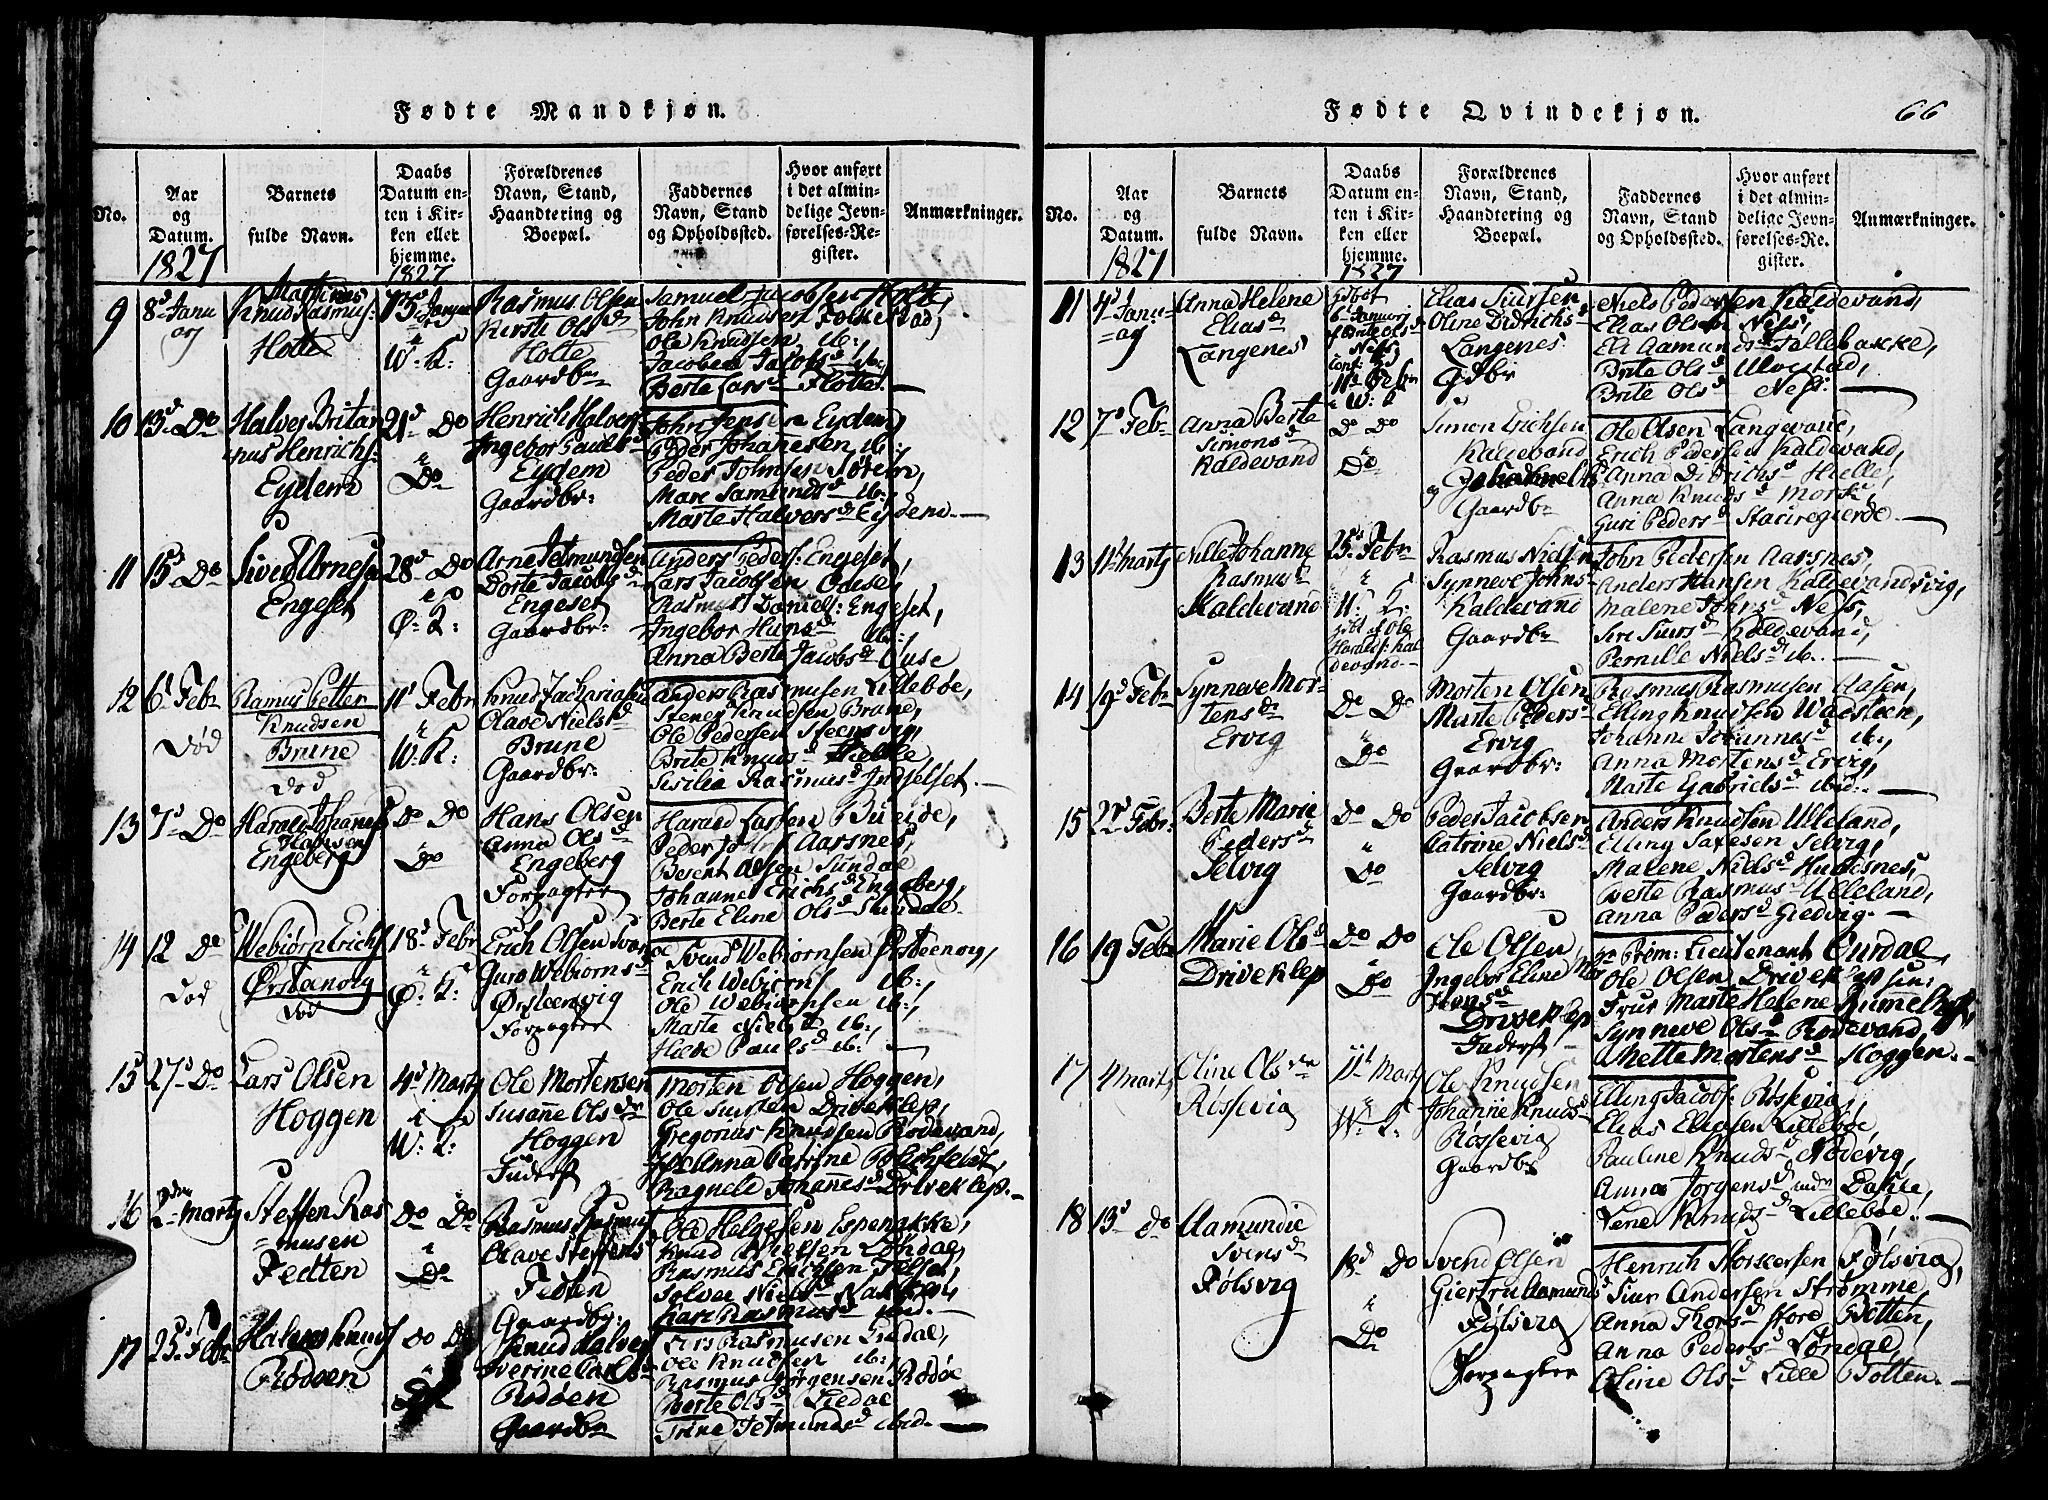 Fødte Mandkjøn.
No.
Aar
og
Datum.
1827
Barnets
fulde Navn.
Daabs
Datum en-
ten i Kir-
ken eller
hjemme.
1827
Forældrenes
Navn, Stand,
Haandtering og
Boepæl.
Faddernes
Navn, Stand
og Opholdssted.
Hvor anført
i det almin-
delige Jevn-
førelses-Re-
gister.
Anmærkninger.
9
8d Janu
arj
Mattines
Knud Rasmus-
Holte
W: K:
Rasmus Olsen
Kirste Olsd
Holte
Gaardbr
Samuel Jacobsen Holte,
John Knudsen Folkestad,
Ole Knudsen, ib:,
Jacobea Jacobsd
Berte Larsd Holte.
10
13d Do
Halver Britan
nus Henrichs:
Eydem
21d Do
Do
Henrich Halvers
Ingebor Paulsd
Eydem
Gaardbr:
John Jensen Eydem,
Peder Johanesen ib:,
Peder Johnsen
Mare Samundsd ib:,
Marte Halversd Eydem.
11
15d Do
Sived Arnesen
Engeset
28d Do
Ø: K:
Arne Jetmundsen
Dorte Jacobsd
Engeset
Gaardbr:
Anders Peders: Engeset,
Lars Jacobsen Ouse,
Rasmus Daniels: Engeset,
Ingebor Hansd ib:,
Anna Berte Jacobsd Ouse
12
6d Febr
Død
Rasmus Petter
Knudsen
Brune
død
11d Febr
W: K:
Knud Zachariasen
Olave Nielsd
Brune
Gaardbr:
Anders Rasmusen Lillebøe,
Knudsen Brune,
Ole Pedersen Steensvig,
Brite Knudsd
Sicilia Rasmusd
13
7d Do
Harald Johanes
Hansen
Engeberg
Do Do
Do
Hans Olsen
Anna Olsd
Engeberg
Forpagter
Harald Larsen Bueide,
Peder Aarsnes,
Besent Olsen Sundal
Johanne Erichsd Engeberg,
Berte Eline Olsd Sundal.
14
12 Do
død
Webiørn Erichs
Ørstanvig
død
18d Febr
Ø: K:
Erich Olsen
Guro Webiornsd
Ørsteenvig
Forpagter
Svend Webiornsen Ørsteenvig,
Erich Webiorns ib:,
Ole Webiornsen ib:,
Marte Nielsd ib:,
Hilde Paulsd ib:
15
27d Do
Lars Olsen
Hoggen
4d Martj
W: K:
Ole Mortensen
Susanne Olsdr
Hoggen
Inderst
Morten Olsen Hoggen,
Ole Driveklep,
Gregorius Knudsen Rødevand,
Anna Catrine
Ragnele Johanesd Driveklep.
16
2den Martj
Steffen Ras
musen
Fedten
Do Do
Do
Rasmus Rasmus
Olave Steffensd
Fedten
Gaardbr:
Ole Helgesen Espenakke,
Knud Nielsen Løhdal,
Rasmus Erichsen
Solvee Nielsd Nakken,
Kari Rasmusd ibid.
17
25d Febr
Halver Knuds
Rødøen
Do Do
Do
Knud Halvers
Sverine Carlsd
Rødøen
Gaardbr
Lars Rasmusen Lirdal,
Ole Knudsen ib:,
Rasmus Jørgensen Rødøe
Berte Olsd Liedal
Trine Jetmundsd ibid.
Fødte Qvindekjøn.
66
No.
Aar
og
Datum.
1827
Barnets
fulde Navn.
Daabs
Datum en-
ten i Kir-
ken eller
hjemme.
1827
Forældrenes
Navn, Stand,
Haandtering og
Boepæl.
Faddernes
Navn, Stand
og Opholdssted.
Hvor anført
i det almin-
delige Jevn-
førelses-Re-
gister.
Anmærkninger.
11
4d Janu-
arj
Anna Helene
Eliasd
Langenes
W: K
Elias Siursen
Oline Didrichsd
Langenes
Gdbr
Niels Pedersen Kaldevand,
Elias Olsen Ness,
Eli Aamundsd Follebakke,
Brite Olsd Ulvestad,
Brite Olsd Ness.
12
7d Febr
Anna Berte
Simonsd
Kaldevand
Do Do
Do
Simon Erichsen
Kaldevand
og
Gaardbr
Ole Olsen Langevand,
Erich Pedersen Kaldevand,
Anna Didrichsd Helle,
Anna Knudsd Mork,
Guri Pedersd Stauregierde.
13
11d Martj
Nille Johanne
Rasmusd
Kaldevand
25d Febr
W: K:
Gdbt af Ole
Haralds: Kal
devand
Rasmus Nielsen
Synneve Johns-
Kaldevand
Gaardbr
John Pedersen Aarsnes,
Anders Hansen Kaldevandsvig,
Malene Johnsd Ness,
Siri Siursd Kaldevand,
Pernille Nielsd ib.
14
19d Febr
Synneve Mor-
tensd
Ervig
Do Do
Do
Morten Olsen
Marte Pedersd
Ervig
Gaardbr:
Rasmus Rasmusen Aasen,
Elling Knudsen Wadsteen,
Johanne Johannesd ib:,
Anna Mortensd Ervig,
Marte Gabrielsd ibid.
15
Febr:
Berte Marie
Pedersd
Selvig
Do Do
Do
Peder Jacobsen
Catrine Nielsd
Selvig
Gaardbr:
Anders Knudsen Ulleland,
Elling Selvig,
Malene Nielsd Hundesnes,
Berte Rasmusd Ulleland,
Anna Pedersd Giedvig.
16
19 Febr
Marie Olsd
Driveklep
Do Do
Do
Ole Olsen
Ingebor Eline Mor
tensd
Driveklep
Inderst
Hr Prem: Lieutenant Gurdal,
Ole Olsen Driveklep sen:
Frue Marte Helene Rumelhoff,
Synneve Olsd Rødevand,
Anette Mortensd Hoggen.
17
4 Martj
Eline Olsdr
Røssevig
11d Martj
W: K:
Ole Knudsen
Johanne Knudsd
Røssevig
Gaardbr
Elling Jacobs: Røssevig,
Elias Eliasen Lillebøe,
Pauline Knudsd Nødevig,
Anna Jørgensd Indre Dahle,
Lene Knudsd Lillebøe.
18
13d Do
Aamundie
Svensd
Følsvig
18d Do
Do
Svend Olsen
Giertru Aamundsd
Følsvig
Forpagter
Henrich Torkersen Følsvig,
Siur Andersen Strømme,
Anna Thorsd Store Botten,
Anna Pedersd Løndal,
Oline Olsd Lille Botten.